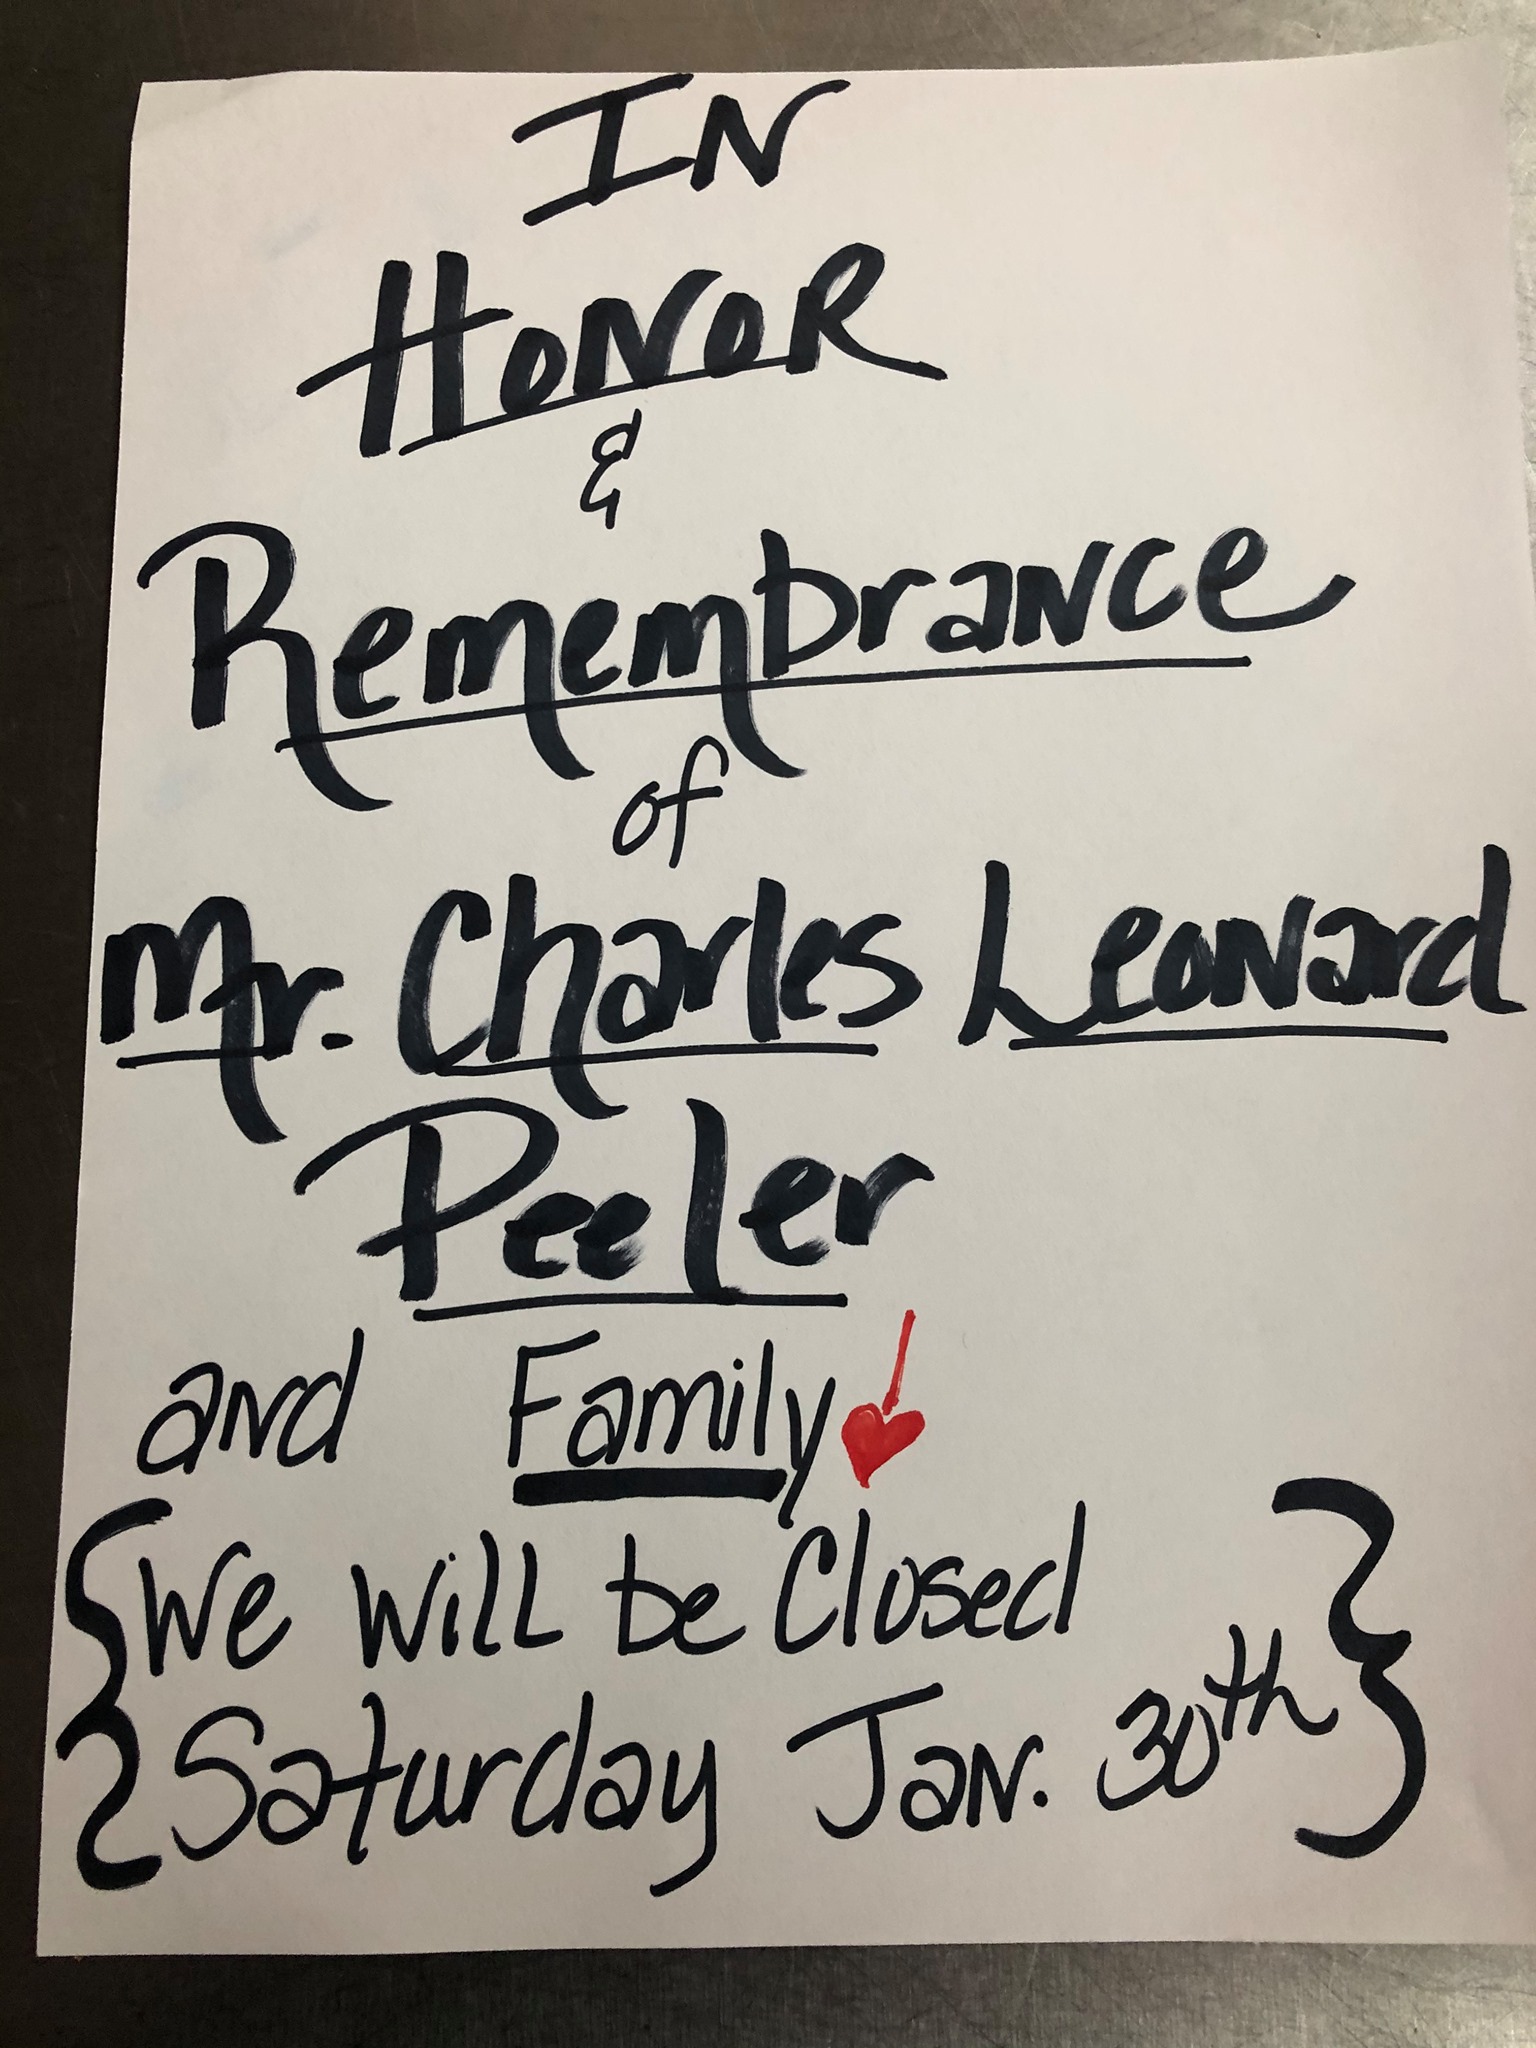 IN
HONOR
&
Remembrance
of
Mr. Charles Leonard
Peeler
and Family
We will be Closed
Saturday Jan. 30th